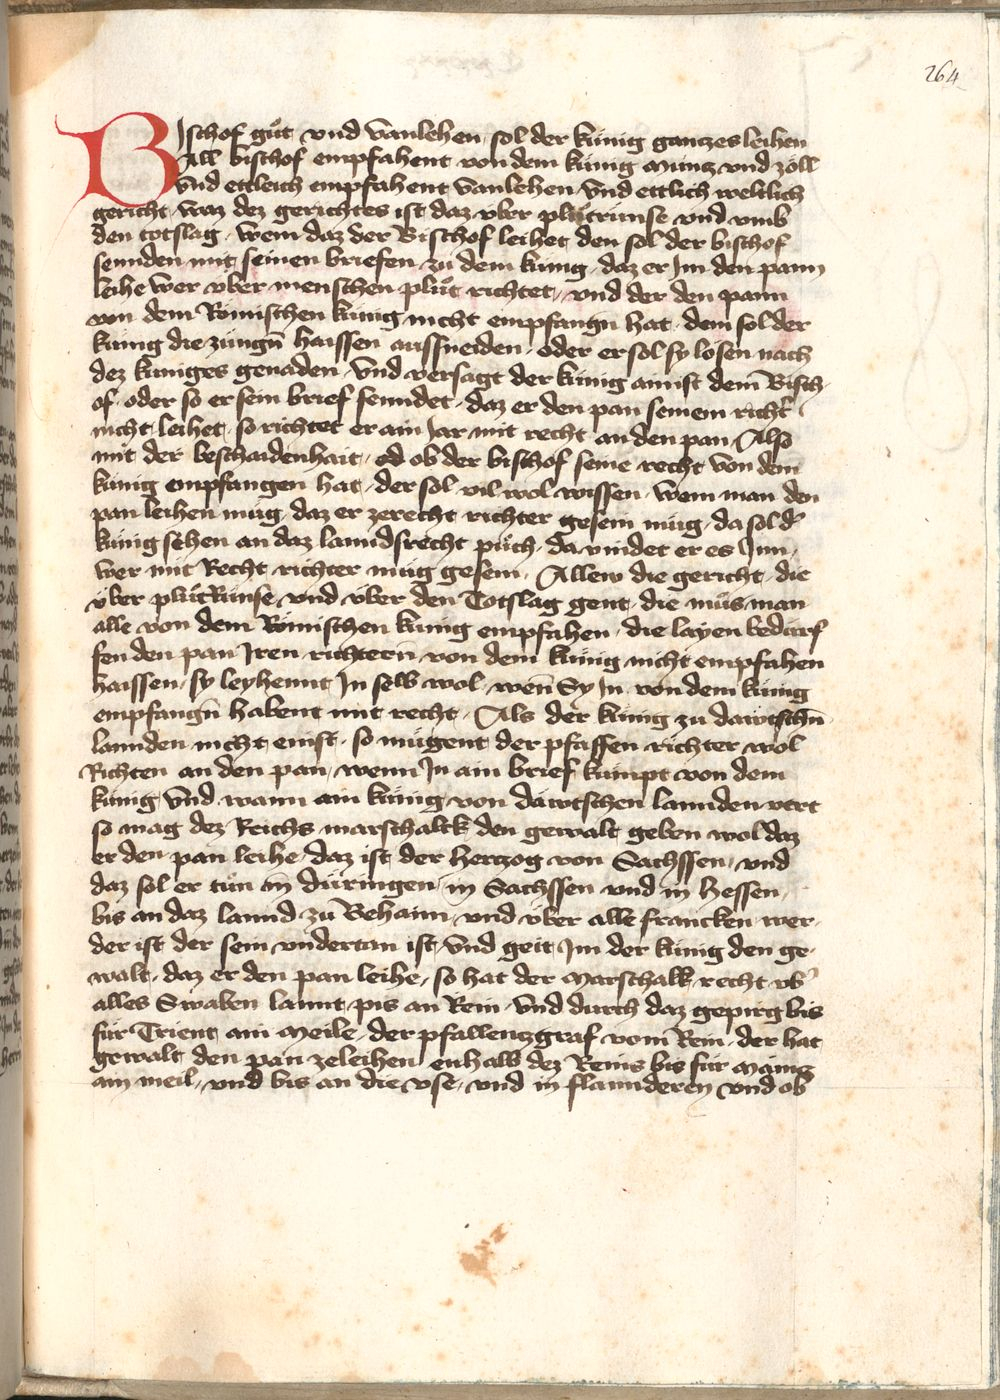 264
Bischof gůt vnd vanlehen sol der künig ganczes leihen
All bischof empfahent von dem künig münz vnd zöll
vnd ettleich empfahent vanlehen vnd ettlich weltlich
gericht waz dez gerichtes ist daz vber plůtrunse vnd vmb
den totslag wem daz der Bischof leihet den sol der bischof
sennden mit seinen briefen zu dem küng daz er Im den pann
leihe wer vber menschen plůt richtet vnd der den pann
von dem Römischen künig nicht empfangn hat dem sol der
künig die züngn haissen aussneiden oder er sol sy losen nach
dez küniges genaden vnd versagt der künig ainist dem Bisch
of oder so er sein brief senndet daz er den pan seinem richt
nicht leihet so richtet er ain Jar mit recht an den pan Also
mit der beschaidenhait od ob der bischof seine recht von dem
künig empfangen hat der sol vil wol wissen wem man den
pan leihen müg daz er zerecht richter gesein müg da sol d
künig sehen an daz lanndsrecht půch da vindet er es Inn
wer mit Recht richter müg gesein Allew die gericht die
vber plůtRunse vnd vber den Totslag gent die můs man
alle von dem Römischen künig empfahen die layen bedürf
fen den pan Iren richtern von dem künig nicht empfahen
haissen sy leyhennt In selb wol wen Sy In von dem künig
empfangn habent mit recht Als der künig zu dawtschn
lannden nicht enist so mügent der pfaffen richter wol
Richten an den pan wenn In ain brief kümpt von dem
künig vnd wann ain künig von däwtschen lannden vert
so mag dez Reichs marschalck den gewalt geben wol daz
er den pan leihe daz ist der herczog von Sachssen vnd
daz sol er tůn in düringen in Sachssen vnd in hessen
bis an daz lannd zu Behaim vnd vber alle francken wer
der ist der sein vndertan ist vnd geit Im der künig den ge
walt daz er den pan leihe so hat der marschalk recht vb
alles Swaben lannt pis an Rein vnd durch daz gepirg bis
für Trient ain Meile der pfallenczgraf vom Rein der hat
gewalt den pan zeleihen enhalb dez Reins bis für Mäincz
ain meil vnd bis an die vse vnd in flannderen vnd ob